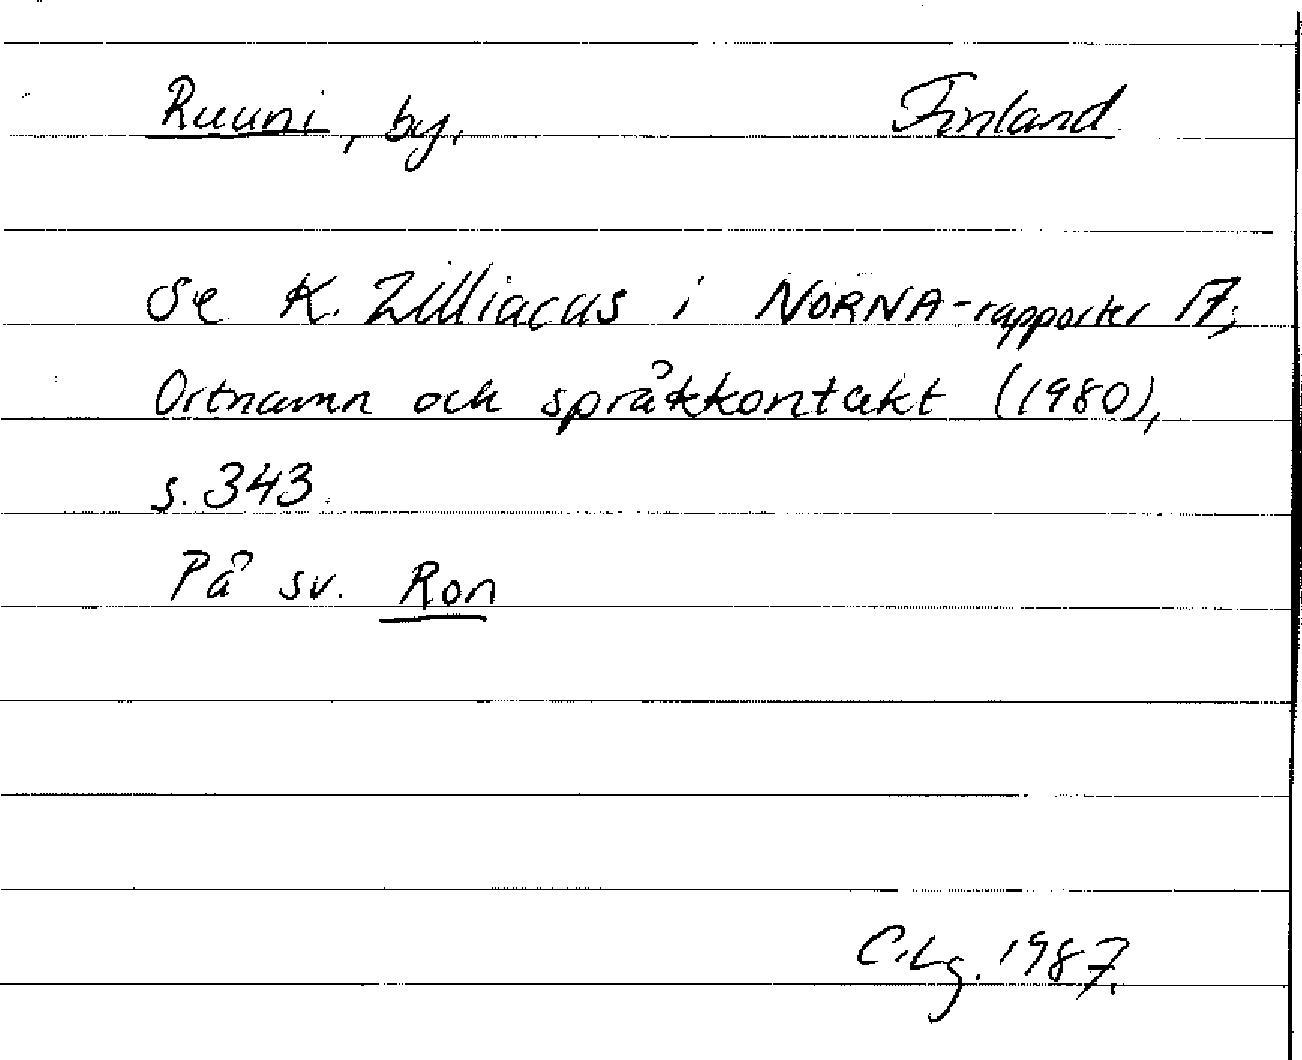 Ruuni, by, Finland
Se K. Zilliacus i NORNA-rapporter 17,
Ortnamn och språkkontakt (1980),
s. 343.
På sv. Ron
C.Lg. 1987.